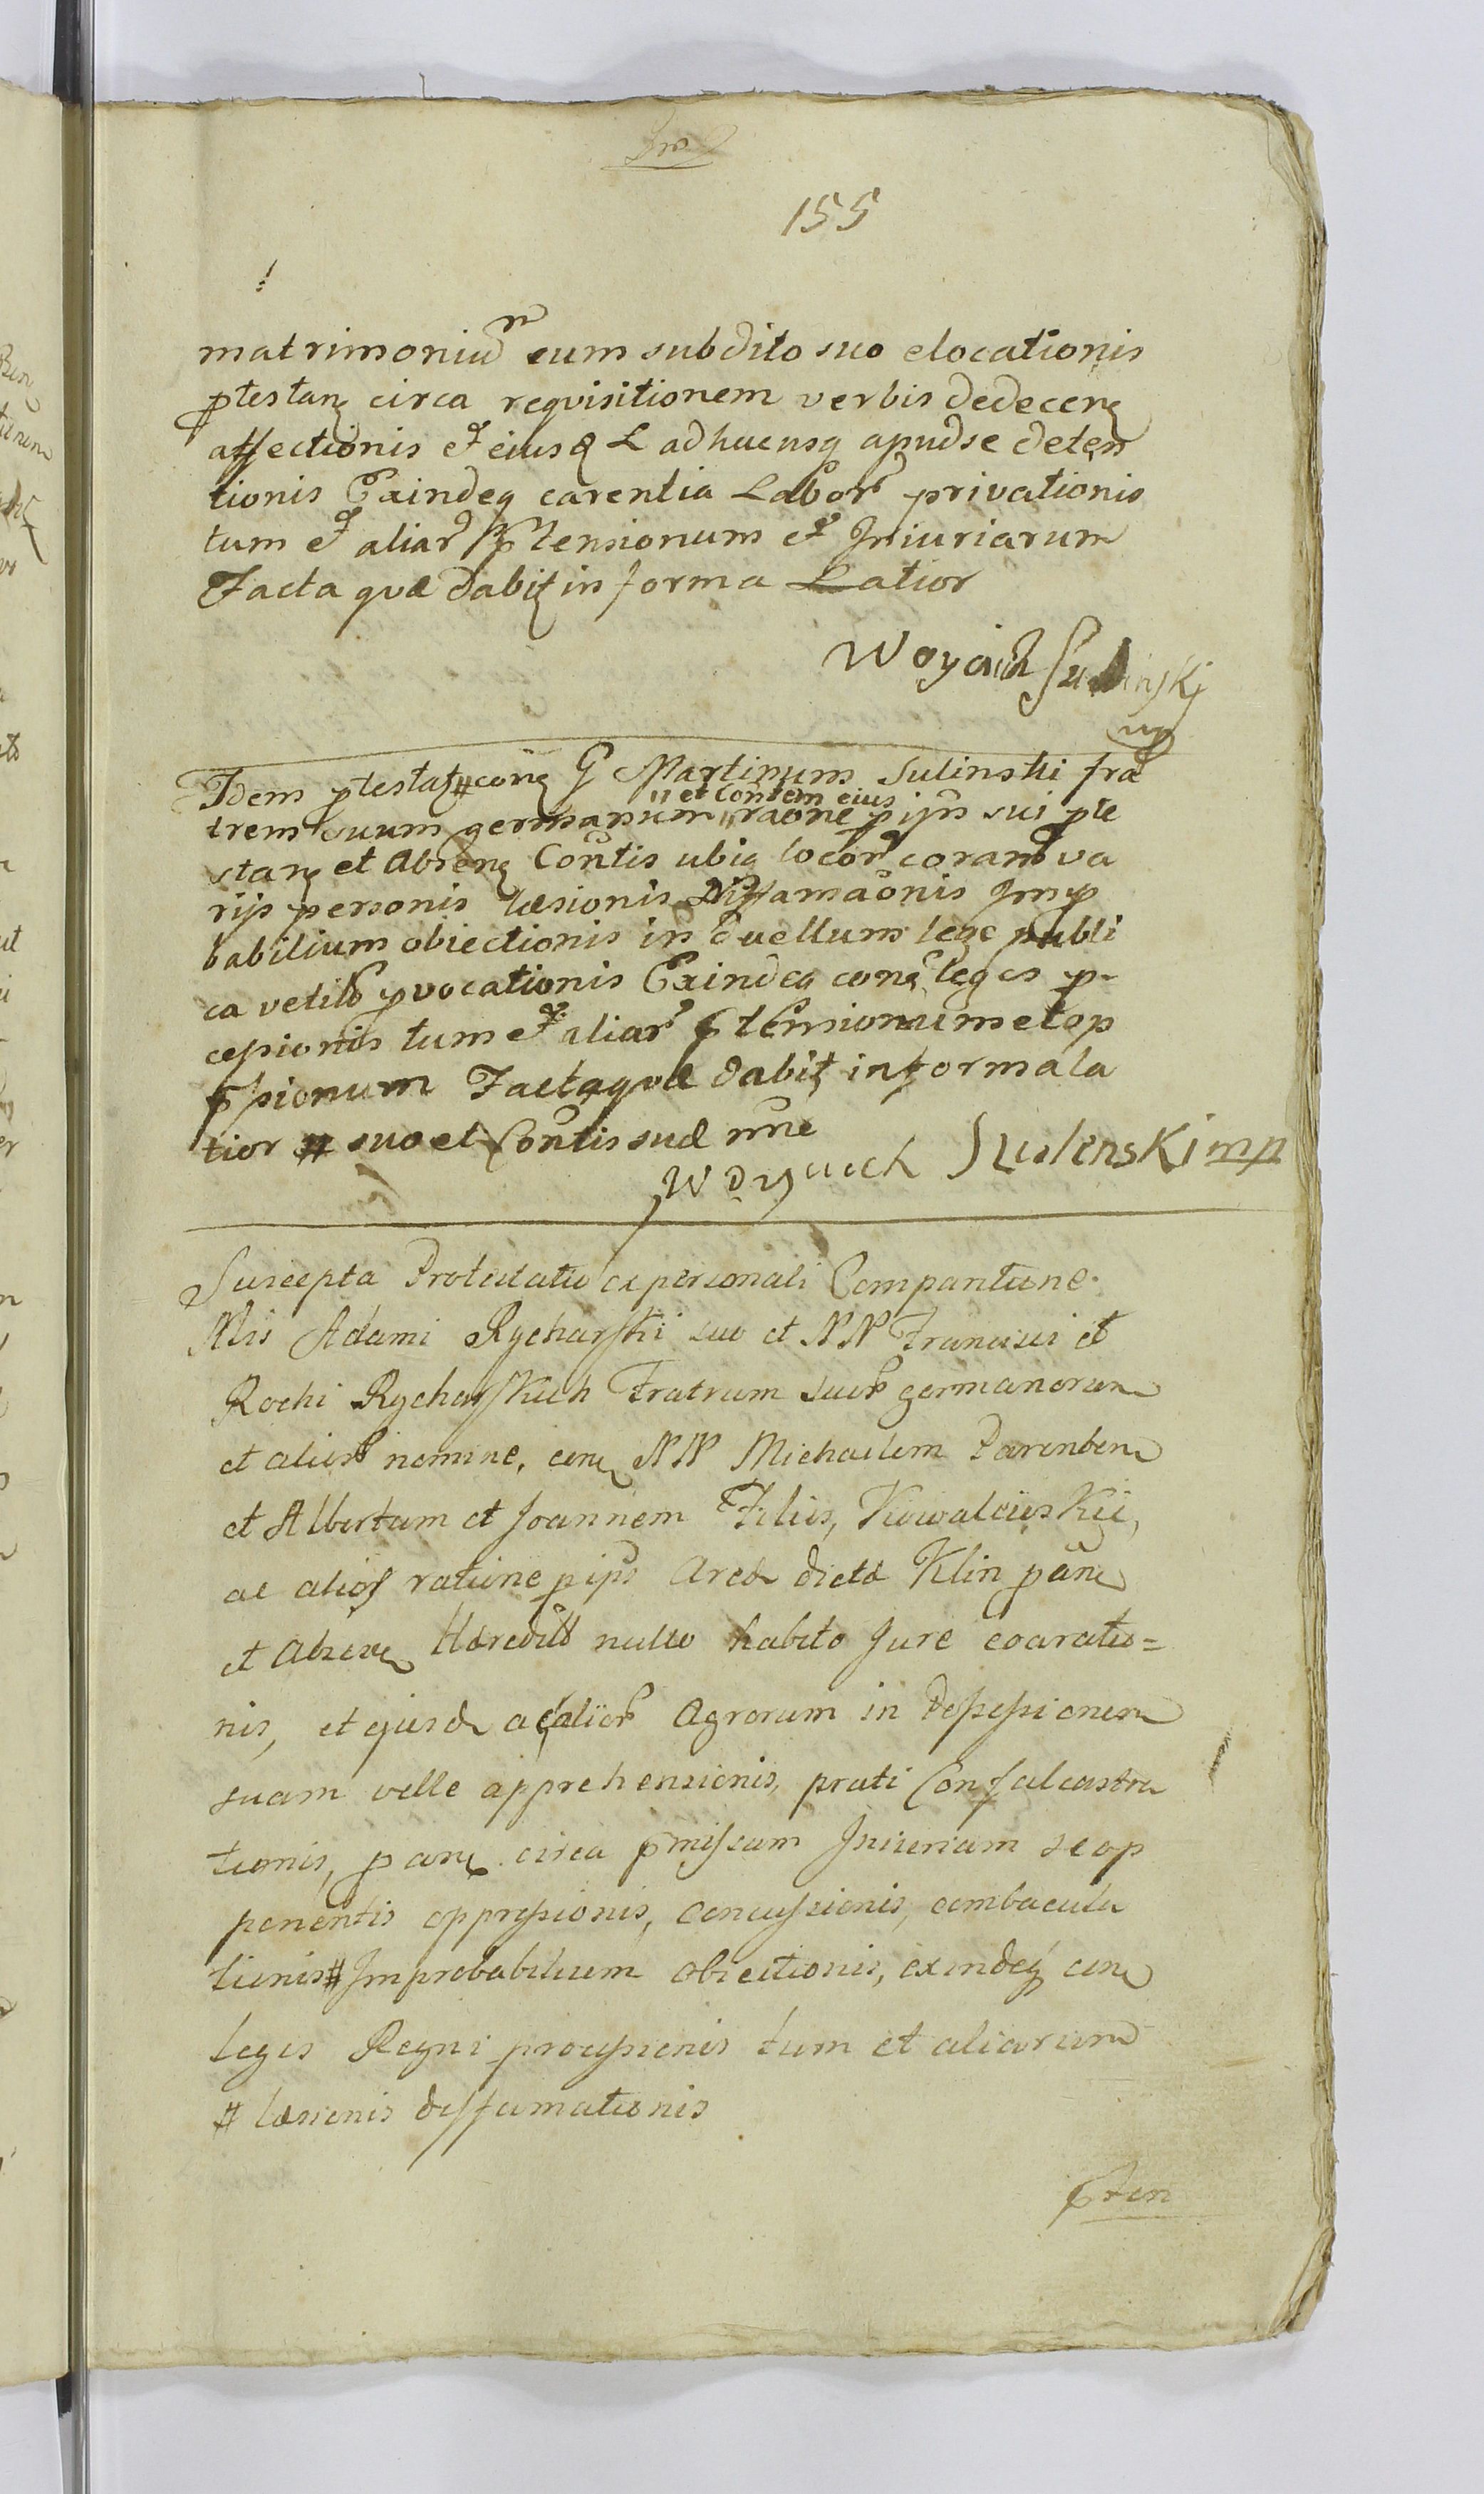 155
matrimoniũ cum subdito suo elocationis
ptestanę circa reqvisitionem verbis dedecenę
affectionis et eiusd L adhucusq apud se deten
tionis Exindeq carentia Labor privationis
tum et aliar ptensionum et Iniuriarum
Facta qvæ dabitį in forma Latior
Woyciech Sulinskj
mp
Idem ptestatį # conę G Martinum Sulinski fra
trem suum germanum " et Contem eius " raõne pijs sui pte
stanę et Absenę Contis ubiq locor coram va
rijs personis læsionis Diffamaõnis Imp
babilium obiectionis in duellum lege publi
ca vetitũ pvocationis Exindeq conę leges p-
cepionis tum et aliar ptensionum et op
pssionum Facta qvæ dabitį in forma la
tior # suo et Contis suæ nñe
Woyciech Szulenski mp
Suscepta Protestatio ex personali Comparitione
Nlis Adami Rycharski suo et NN Francisci et
Rochi Rycharskich Fratrum suor germanorum
et alior nomine, conę NN Michaelem Parentem
et Albertum et Joannem Filios, Kowalewskie,
ac alios ratione pijs Areæ dictæ Klin panę
et Absenę Hæredũ nullo habito Jure exaratio=
nis, et ejusd ac alior Agrorum in Possessionem
suam velle apprehensionis, prati Confalcastra
tionis, panę circa pmissam Iniuriam se op
ponentis oppressionis, concussionis, combacula
tionis # Improbabilium obiectionis, exindeq conę
leges Regni processionis tum et aliarum
# læsionis diffamationis
pten